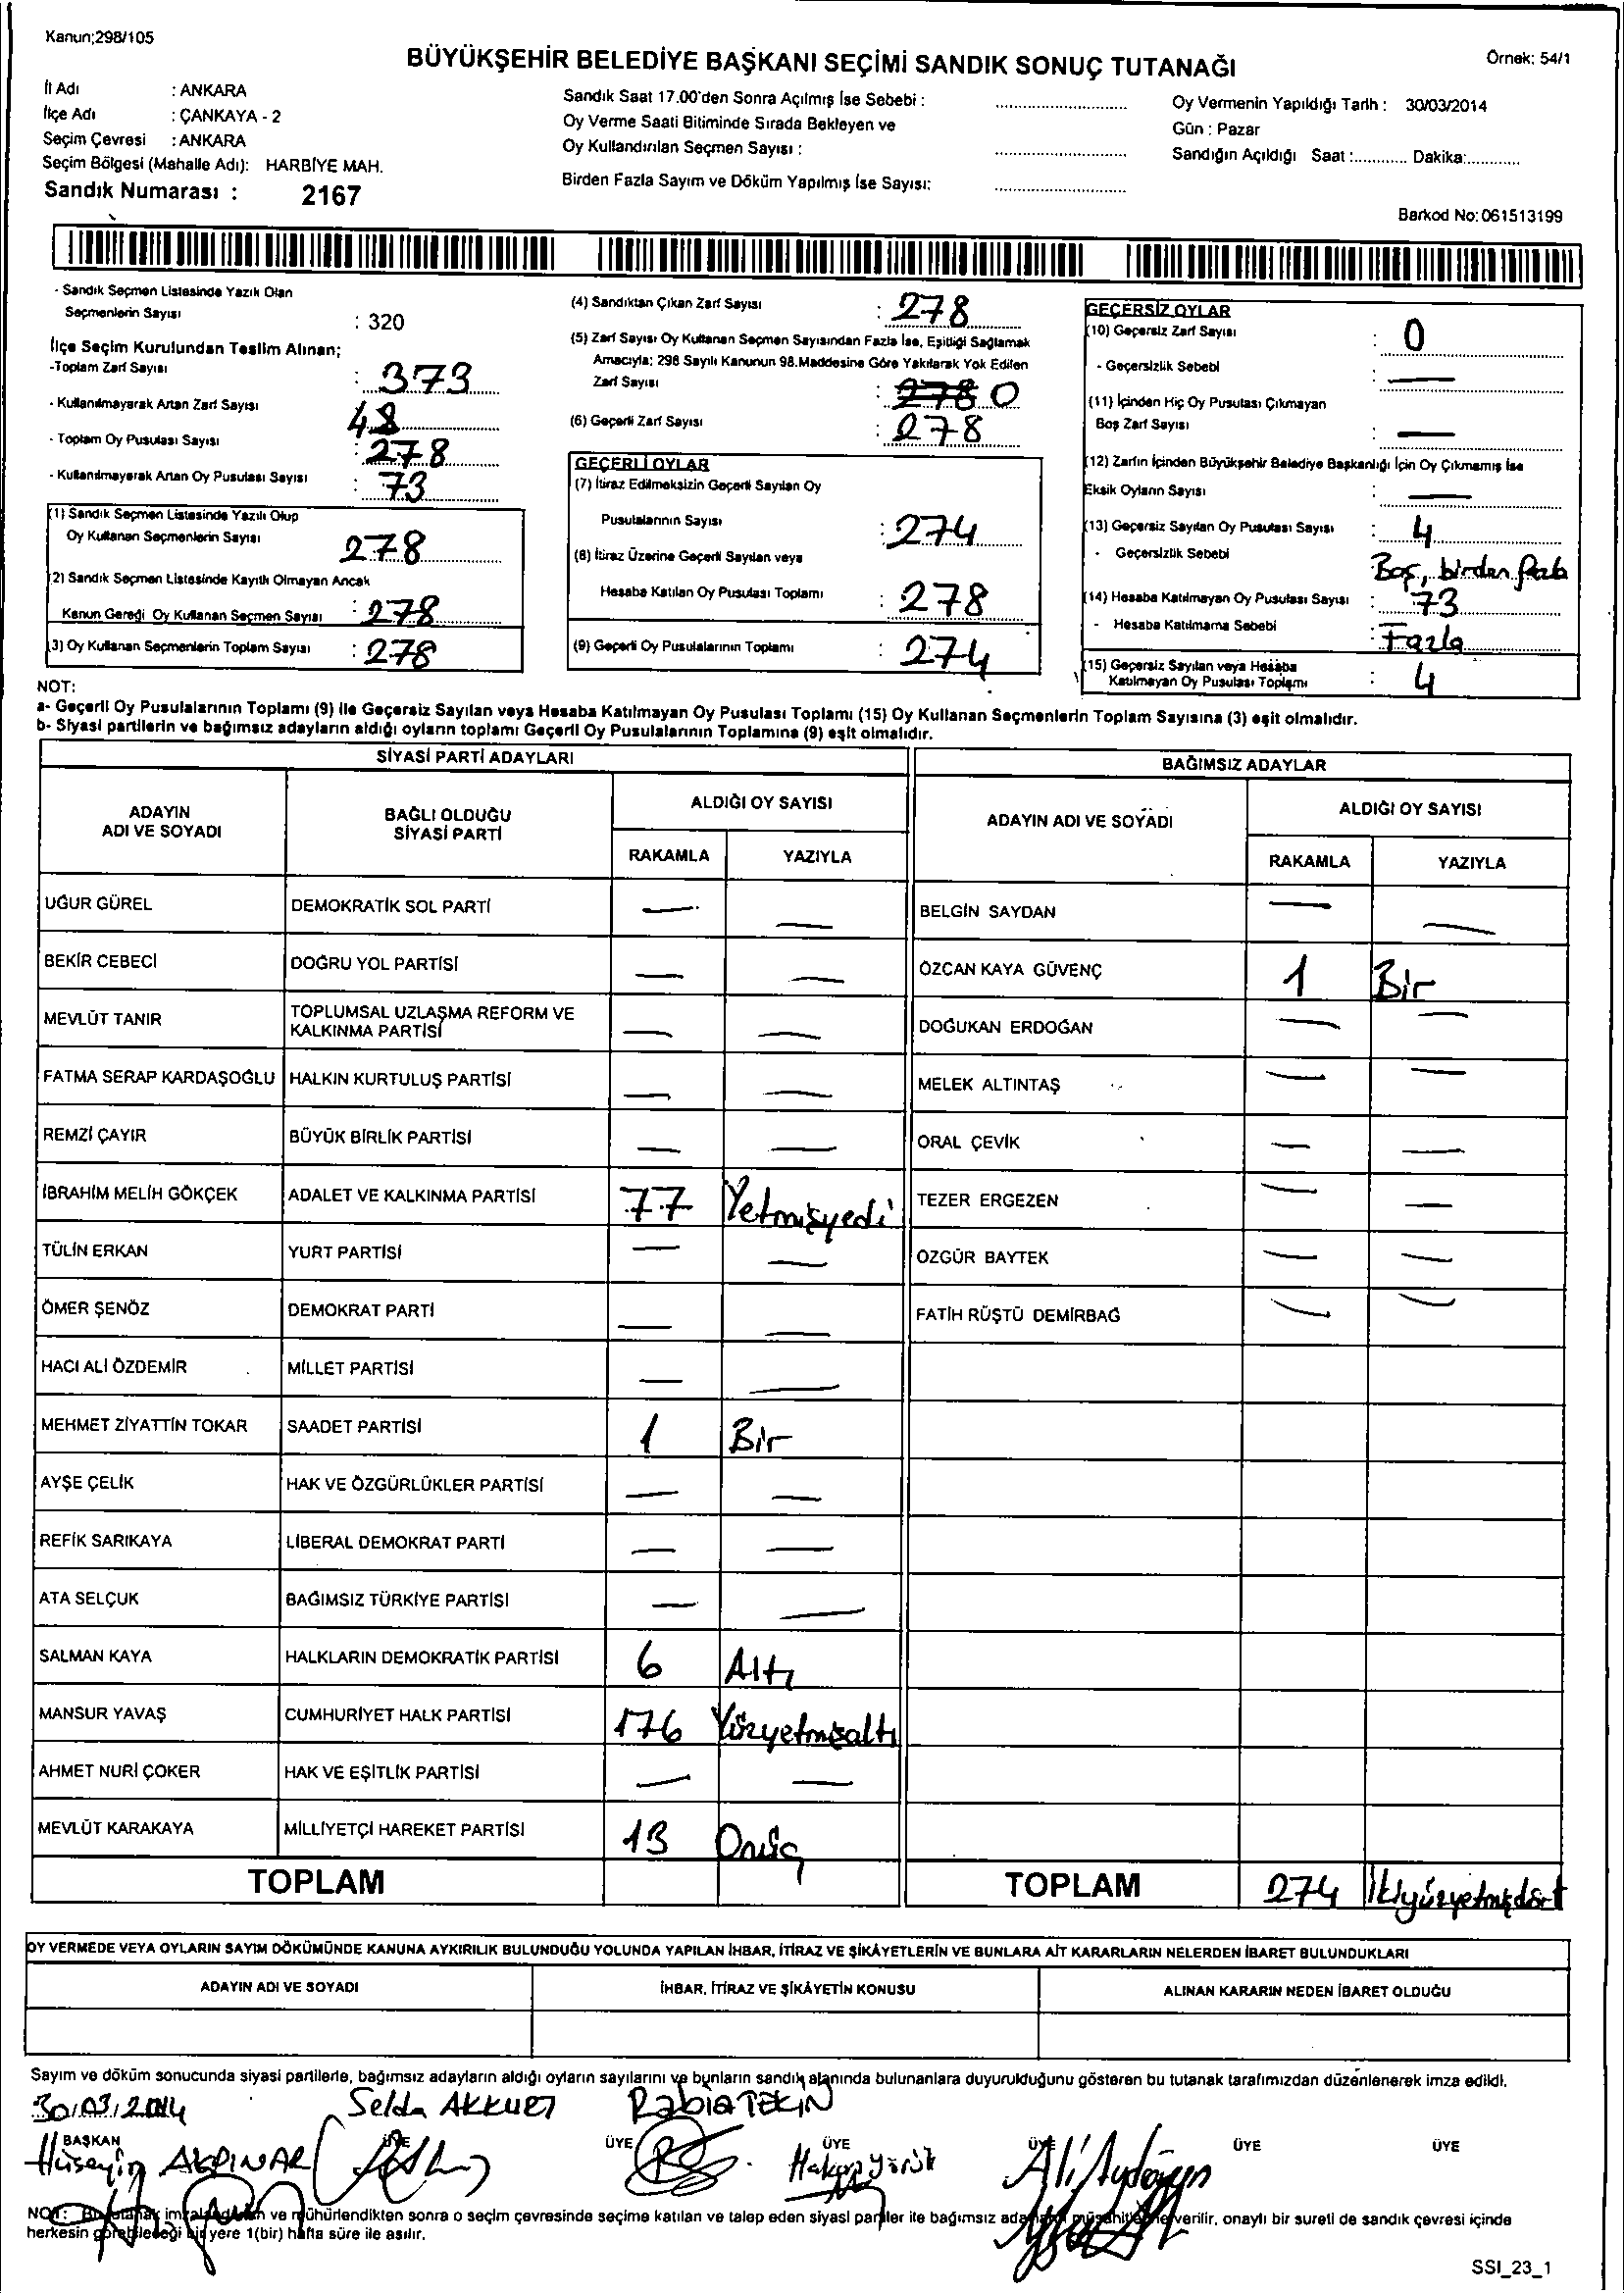 Kanun;298/105
BÜYÜKŞEHİR BELEDİYE BAŞKANI SEÇİMİ SANDIK SONUÇ TUTANAĞI
Örnek: 54/1
İl Adı : ANKARA
İlçe Adı : ÇANKAYA - 2
Seçim Çevresi : ANKARA
Seçim Bölgesi (Mahalle Adı): HARBİYE MAH.
Sandık Numarası : 2167
Sandık Saat 17.00'den Sonra Açılmış İse Sebebi :
Oy Verme Saati Bitiminde Sırada Bekleyen ve
Oy Kullandırılan Seçmen Sayısı :
Birden Fazla Sayım ve Döküm Yapılmış İse Sayısı:
Oy Vermenin Yapıldığı Tarih : 30/03/2014
Gün : Pazar
Sandığın Açıldığı Saat :............ Dakika:............
Barkod No: 061513199
- Sandık Seçmen Listesinde Yazılı Olan
Seçmenlerin Sayısı : 320
İlçe Seçim Kurulundan Teslim Alınan;
-Toplam Zarf Sayısı : 373
- Kullanılmayarak Artan Zarf Sayısı 48
- Toplam Oy Pusulası Sayısı : 278
- Kullanılmayarak Artan Oy Pusulası Sayısı : 73
(1) Sandık Seçmen Listesinde Yazılı Olup
Oy Kullanan Seçmenlerin Sayısı 278
(2) Sandık Seçmen Listesinde Kayıtlı Olmayan Ancak
Kanun Gereği Oy Kullanan Seçmen Sayısı : 278
(3) Oy Kullanan Seçmenlerin Toplam Sayısı : 278
(4) Sandıktan Çıkan Zarf Sayısı : 278
(5) Zarf Sayısı Oy Kullanan Seçmen Sayısından Fazla İse, Eşitliği Sağlamak
Amacıyla; 298 Sayılı Kanunun 98.Maddesine Göre Yakılarak Yok Edilen
Zarf Sayısı : 278 0
(6) Geçerli Zarf Sayısı : 278
GEÇERLİ OYLAR
(7) İtiraz Edilmeksizin Geçerli Sayılan Oy
Pusulalarının Sayısı : 274
(8) İtiraz Üzerine Geçerli Sayılan veya
Hesaba Katılan Oy Pusulası Toplamı : 278
(9) Geçerli Oy Pusulalarının Toplamı : 274
GEÇERSİZ OYLAR
(10) Geçersiz Zarf Sayısı : 0
- Geçersizlik Sebebi : —
(11) İçinden Hiç Oy Pusulası Çıkmayan
Boş Zarf Sayısı : —
(12) Zarfın İçinden Büyükşehir Belediye Başkanlığı İçin Oy Çıkmamış İse
Eksik Oyların Sayısı : —
(13) Geçersiz Sayılan Oy Pusulası Sayısı : 4
- Geçersizlik Sebebi Boş, birden fazla
(14) Hesaba Katılmayan Oy Pusulası Sayısı : 73
- Hesaba Katılmama Sebebi : Fazla
(15) Geçersiz Sayılan veya Hesaba
Katılmayan Oy Pusulası Toplamı : 4
NOT:
a- Geçerli Oy Pusulalarının Toplamı (9) ile Geçersiz Sayılan veya Hesaba Katılmayan Oy Pusulası Toplamı (15) Oy Kullanan Seçmenlerin Toplam Sayısına (3) eşit olmalıdır.
b- Siyasi partilerin ve bağımsız adayların aldığı oyların toplamı Geçerli Oy Pusulalarının Toplamına (9) eşit olmalıdır.
SİYASİ PARTİ ADAYLARI
ADAYIN ADI VE SOYADI
BAĞLI OLDUĞU SİYASİ PARTİ
ALDIĞI OY SAYISI
RAKAMLA YAZIYLA
UĞUR GÜREL DEMOKRATİK SOL PARTİ — —
BEKİR CEBECİ DOĞRU YOL PARTİSİ — —
MEVLÜT TANIR TOPLUMSAL UZLAŞMA REFORM VE KALKINMA PARTİSİ — —
FATMA SERAP KARDAŞOĞLU HALKIN KURTULUŞ PARTİSİ — —
REMZİ ÇAYIR BÜYÜK BİRLİK PARTİSİ — —
İBRAHİM MELİH GÖKÇEK ADALET VE KALKINMA PARTİSİ 77 Yetmişyedi
TÜLİN ERKAN YURT PARTİSİ — —
ÖMER ŞENÖZ DEMOKRAT PARTİ — —
HACI ALİ ÖZDEMİR MİLLET PARTİSİ — —
MEHMET ZİYATTİN TOKAR SAADET PARTİSİ 1 Bir
AYŞE ÇELİK HAK VE ÖZGÜRLÜKLER PARTİSİ — —
REFİK SARIKAYA LİBERAL DEMOKRAT PARTİ — —
ATA SELÇUK BAĞIMSIZ TÜRKİYE PARTİSİ — —
SALMAN KAYA HALKLARIN DEMOKRATİK PARTİSİ 6 Altı
MANSUR YAVAŞ CUMHURİYET HALK PARTİSİ 176 Yüzyetmişaltı
AHMET NURİ ÇOKER HAK VE EŞİTLİK PARTİSİ — —
MEVLÜT KARAKAYA MİLLİYETÇİ HAREKET PARTİSİ 13 Onüç
TOPLAM
BAĞIMSIZ ADAYLAR
ADAYIN ADI VE SOYADI
ALDIĞI OY SAYISI
RAKAMLA YAZIYLA
BELGİN SAYDAN — —
ÖZCAN KAYA GÜVENÇ 1 Bir
DOĞUKAN ERDOĞAN — —
MELEK ALTINTAŞ — —
ORAL ÇEVİK — —
TEZER ERGEZEN — —
ÖZGÜR BAYTEK — —
FATİH RÜŞTÜ DEMİRBAĞ — —
TOPLAM 274 İkiyüzyetmişdört
OY VERMEDE VEYA OYLARIN SAYIM DÖKÜMÜNDE KANUNA AYKIRILIK BULUNDUĞU YOLUNDA YAPILAN İHBAR, İTİRAZ VE ŞİKÂYETLERİN VE BUNLARA AİT KARARLARIN NELERDEN İBARET BULUNDUKLARI
ADAYIN ADI VE SOYADI İHBAR, İTİRAZ VE ŞİKÂYETİN KONUSU ALINAN KARARIN NEDEN İBARET OLDUĞU
Sayım ve döküm sonucunda siyasi partilerle, bağımsız adayların aldığı oyların sayılarını ve bunların sandık alanında bulunanlara duyurulduğunu gösteren bu tutanak tarafımızdan düzenlenerek imza edildi.
30/03/2014 Selda AKKURT Rabia TEKİN
BAŞKAN ÜYE ÜYE ÜYE ÜYE ÜYE ÜYE
Hüseyin AKPINAR Hakan Yörük Ali Aydoğan
NOT: Bu tutanak imzalandıktan ve mühürlendikten sonra o seçim çevresinde seçime katılan ve talep eden siyasi partiler ile bağımsız adayların müşahitlerine verilir, onaylı bir sureti de sandık çevresi içinde
herkesin görebileceği bir yere 1(bir) hafta süre ile asılır.
SSI_23_1